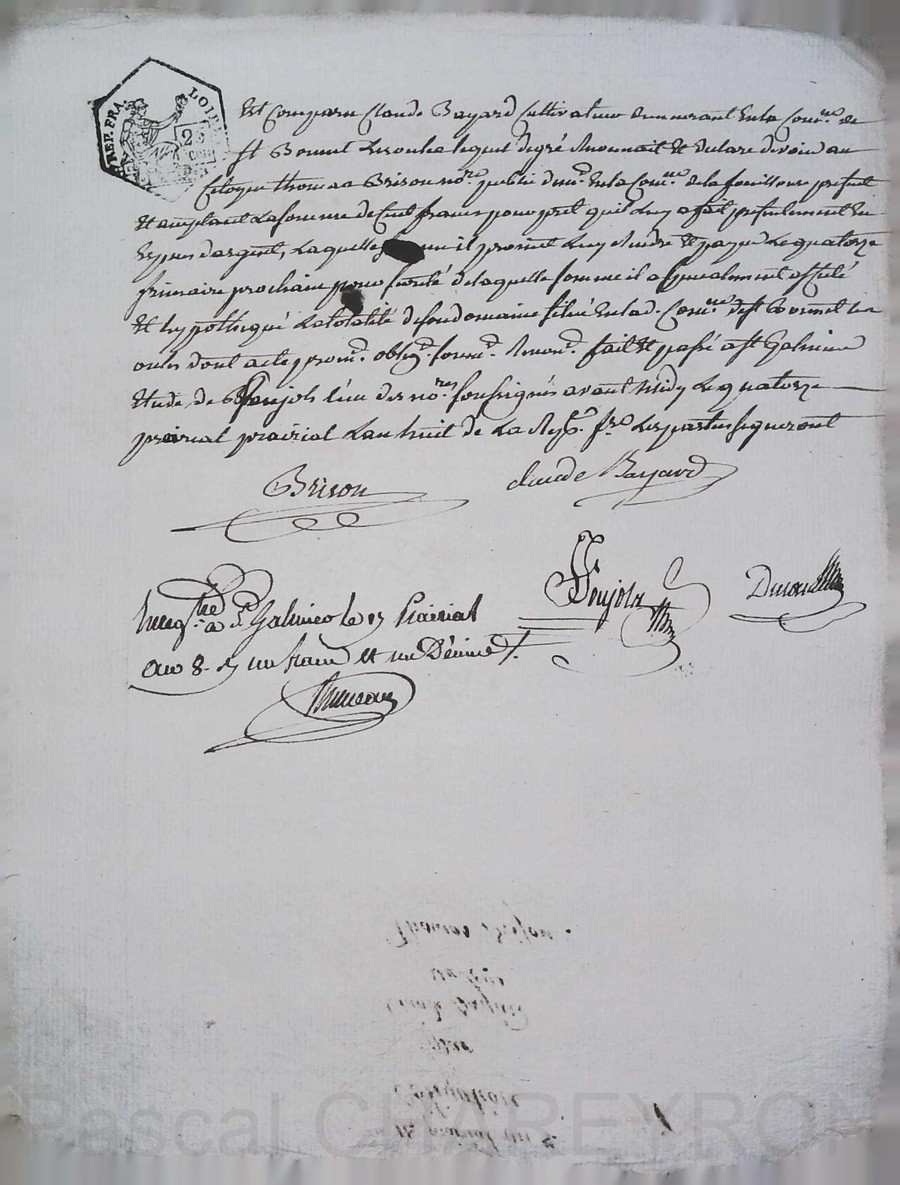 REP. FRA. LOIRE
Est Comparu Claude Bayard Cultivateur demeurant En la Com.ne de
st Bonnet Les oules lequel de gré Reconnait Et declare devoir au
Citoyen thomas Brison no.re public dem.t En la Com.ne de la fouillouse present
Et acceptant La somme de Cent francs pour pret qu'il Luy a fait presentement En
Especes d'argent, Laquelle il promet Luy Rendre Et payer Le quatorze
frimaire prochain pour sureté de laquelle somme il a specialement affecté
Et hypothéqué La totalité de son domaine situé En lad. Com.ne de st Bonnet Les
oules dont acte prom.t oblig.t soum.t Renon.t fait Et passé a st Galmier
Etude de Pujols l'un des no.res soussignés avant Midy Le quatorze
prairial Lan huit de La Rep.e fr.e Les parties signeront
Brison
claude Bayard
Pujols
Enreg.tré à S.t Galmier le 15 Prairial
an 8. un franc et un Décime
Thomas Brison.
Claude Bayard
par
obligation
Pascal CHAREYRON